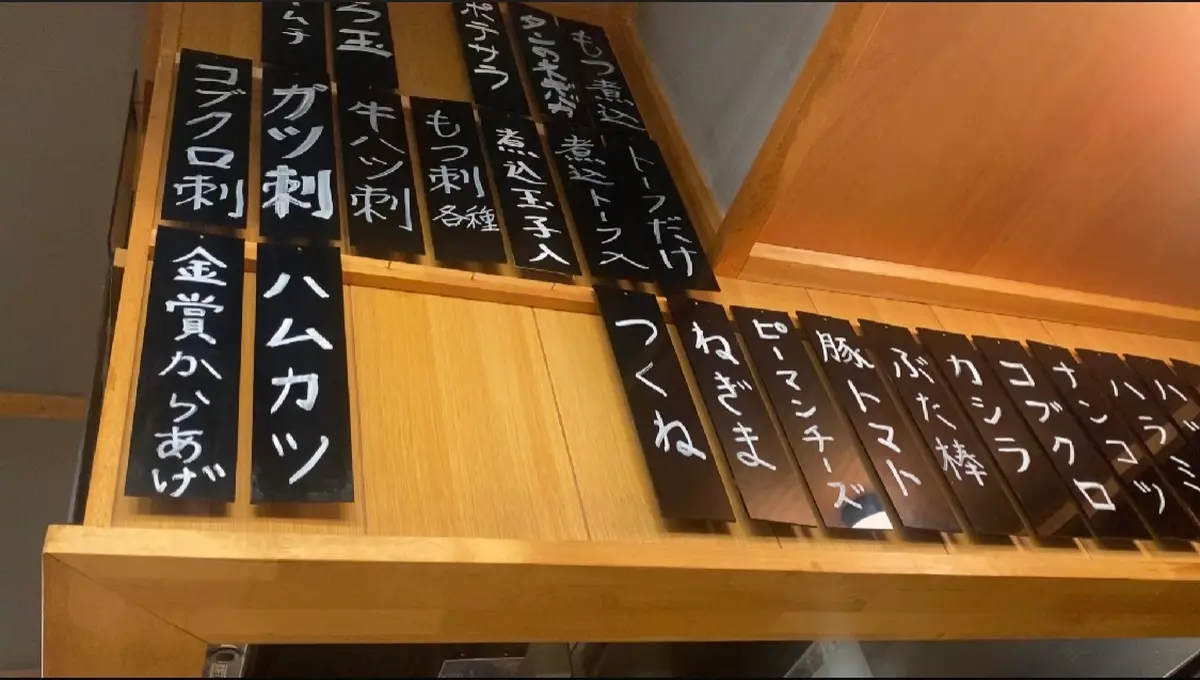 もつ煮込
タンのネギガ
ポテサラ
玉
ムチ
トーフだけ
煮込トーフ入
煮込玉子入
もつ刺
各種
牛ハツ刺
ガツ刺
コブクロ刺
ハラミ
ハラ
ナンコツ
コブクロ
カシラ
ぶた棒
豚トマト
ピーマンチーズ
ねぎま
つくね
ハムカツ
金賞からあげ